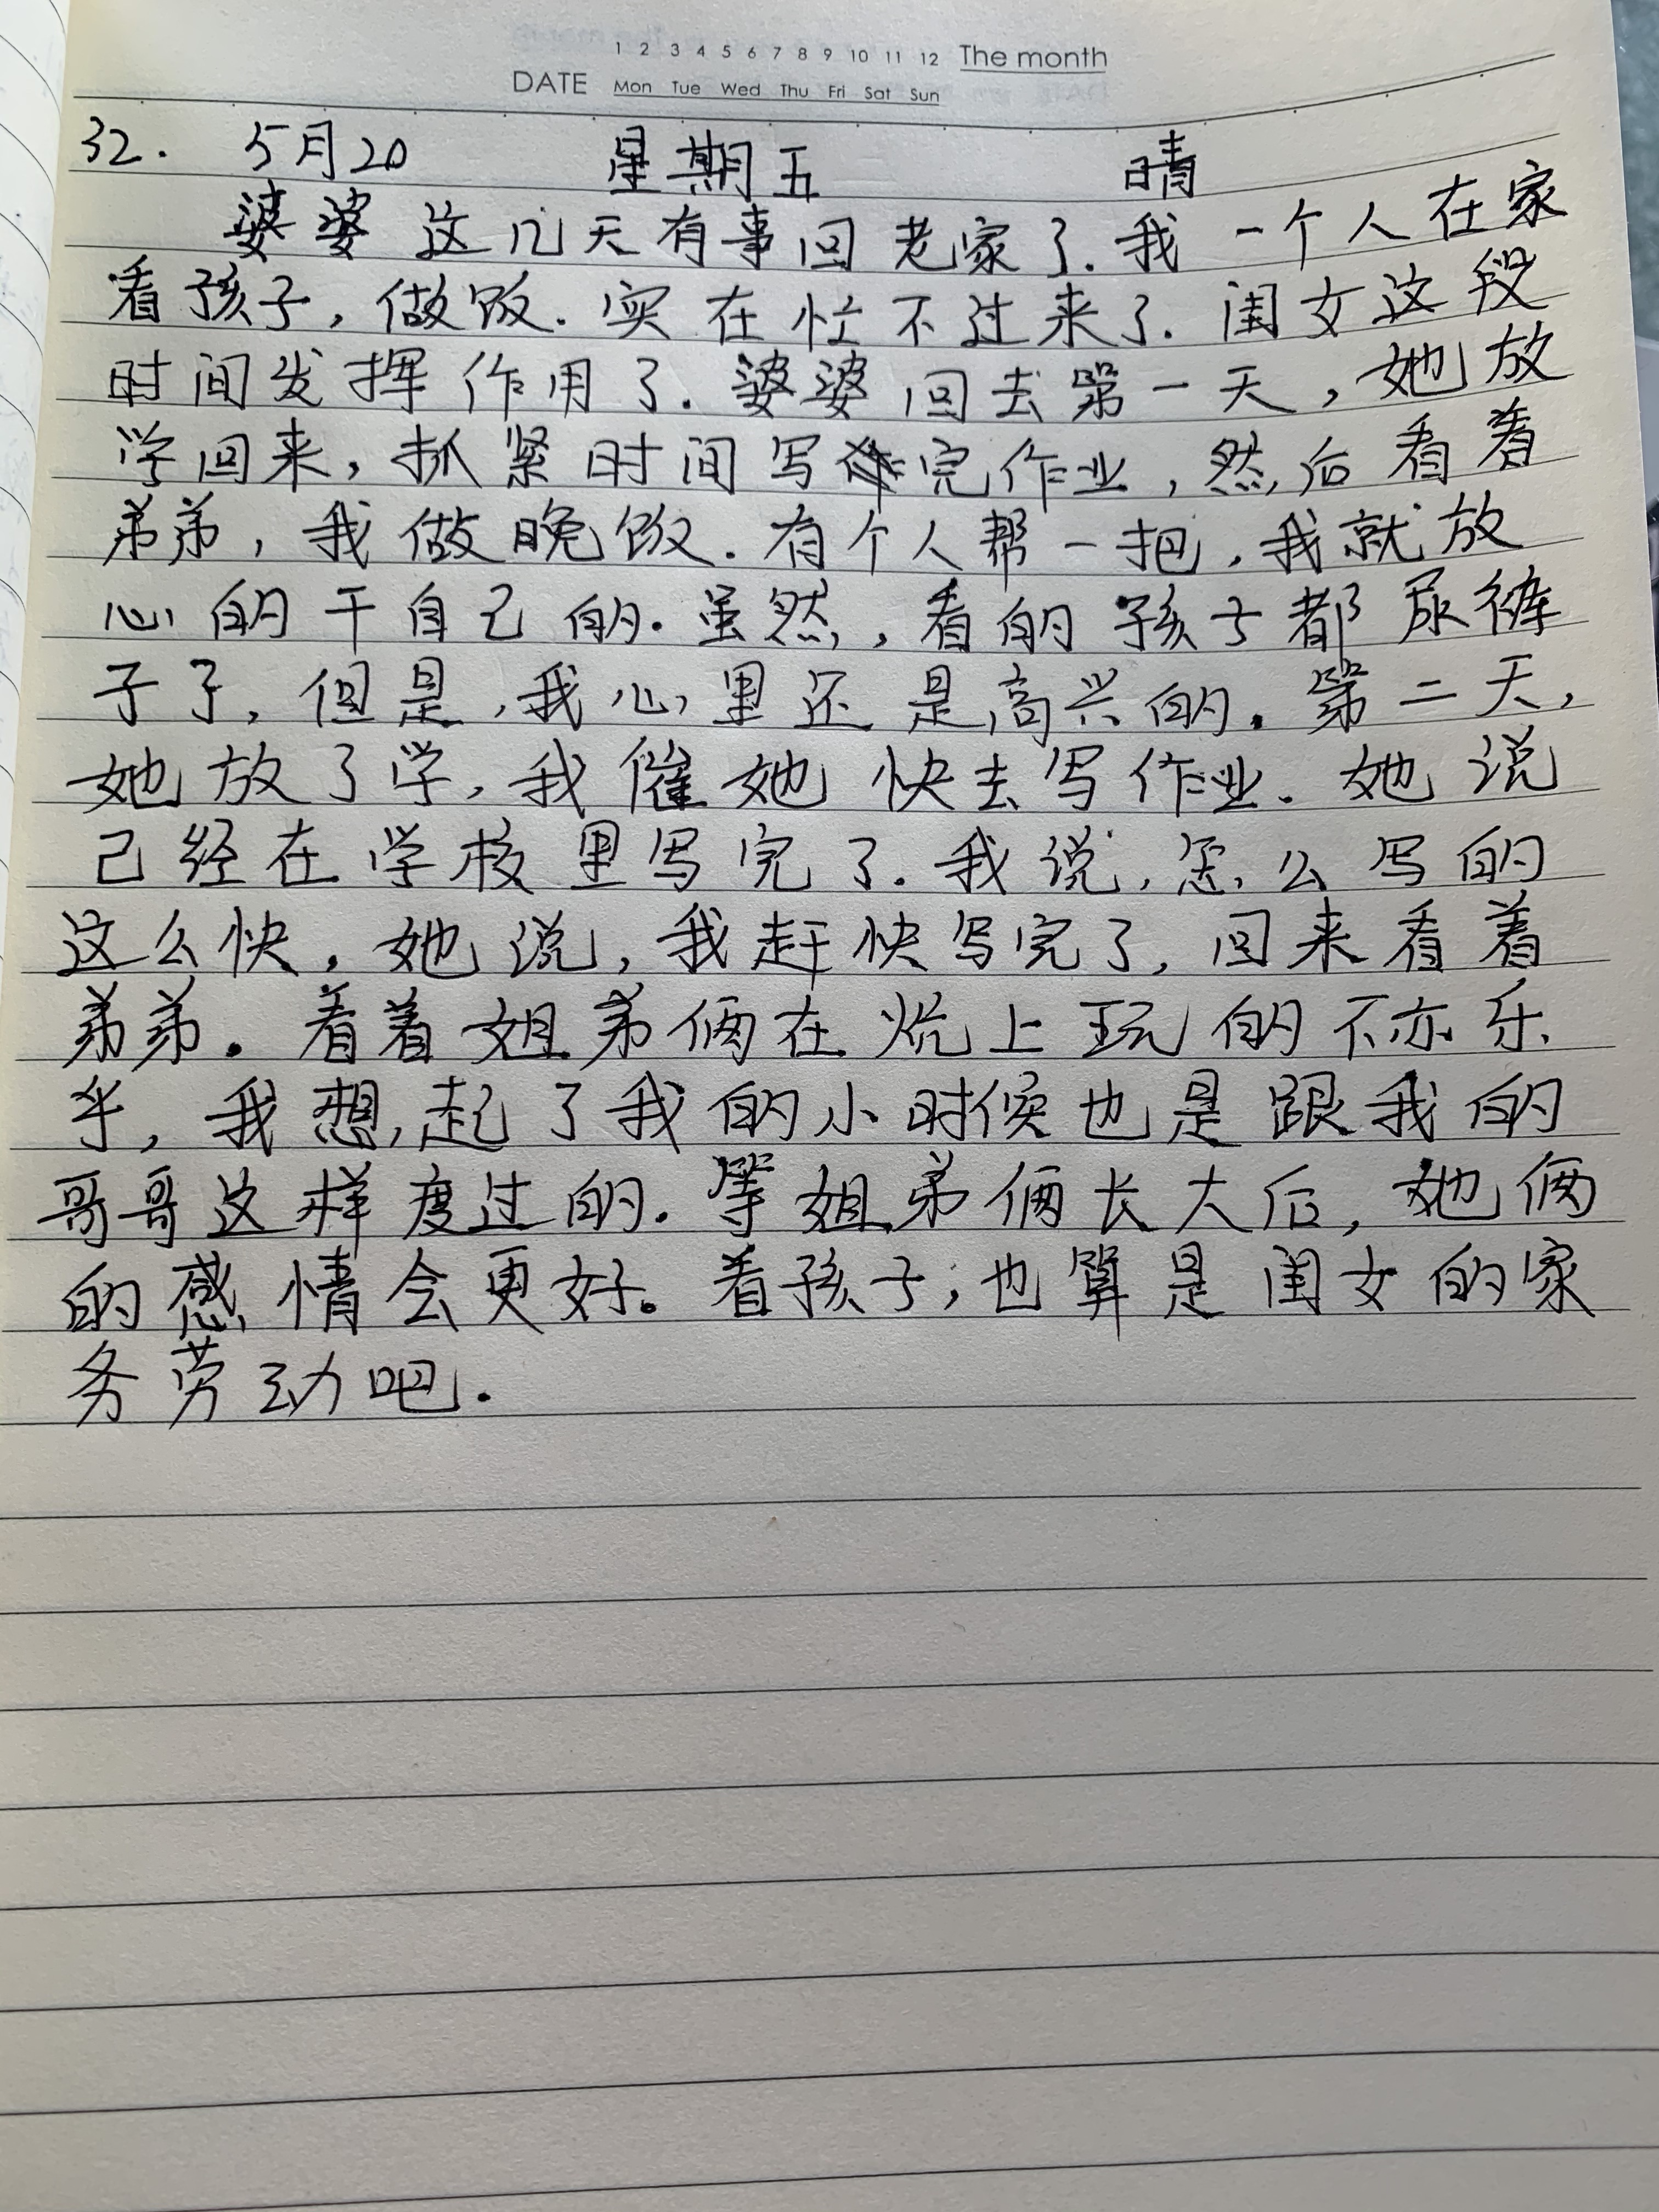 1 2 3 4 5 6 7 8 9 10 11 12 The month
DATE Mon Tue Wed Thu Fri Sat Sun
32. 5月20 星期五 晴
婆婆这几天有事回老家了.我一个人在家
看孩子,做饭.实在忙不过来了.闺女这段
时间发挥作用了.婆婆回去第一天,她放
学回来,抓紧时间写完作业,然后看着
弟弟,我做晚饭.有个人帮一把,我就放
心的干自己的.虽然,看的孩子都尿裤
子了,但是,我心里还是高兴的.第二天,
她放了学,我催她快去写作业.她说
己经在学校里写完了.我说,怎么写的
这么快,她说,我赶快写完了,回来看着
弟弟.看着姐弟俩在炕上玩的不亦乐
乎,我想起了我的小时候也是跟我的
哥哥这样度过的.等姐弟俩长大后,她俩
的感情会更好。看孩子,也算是闺女的家
务劳动吧.